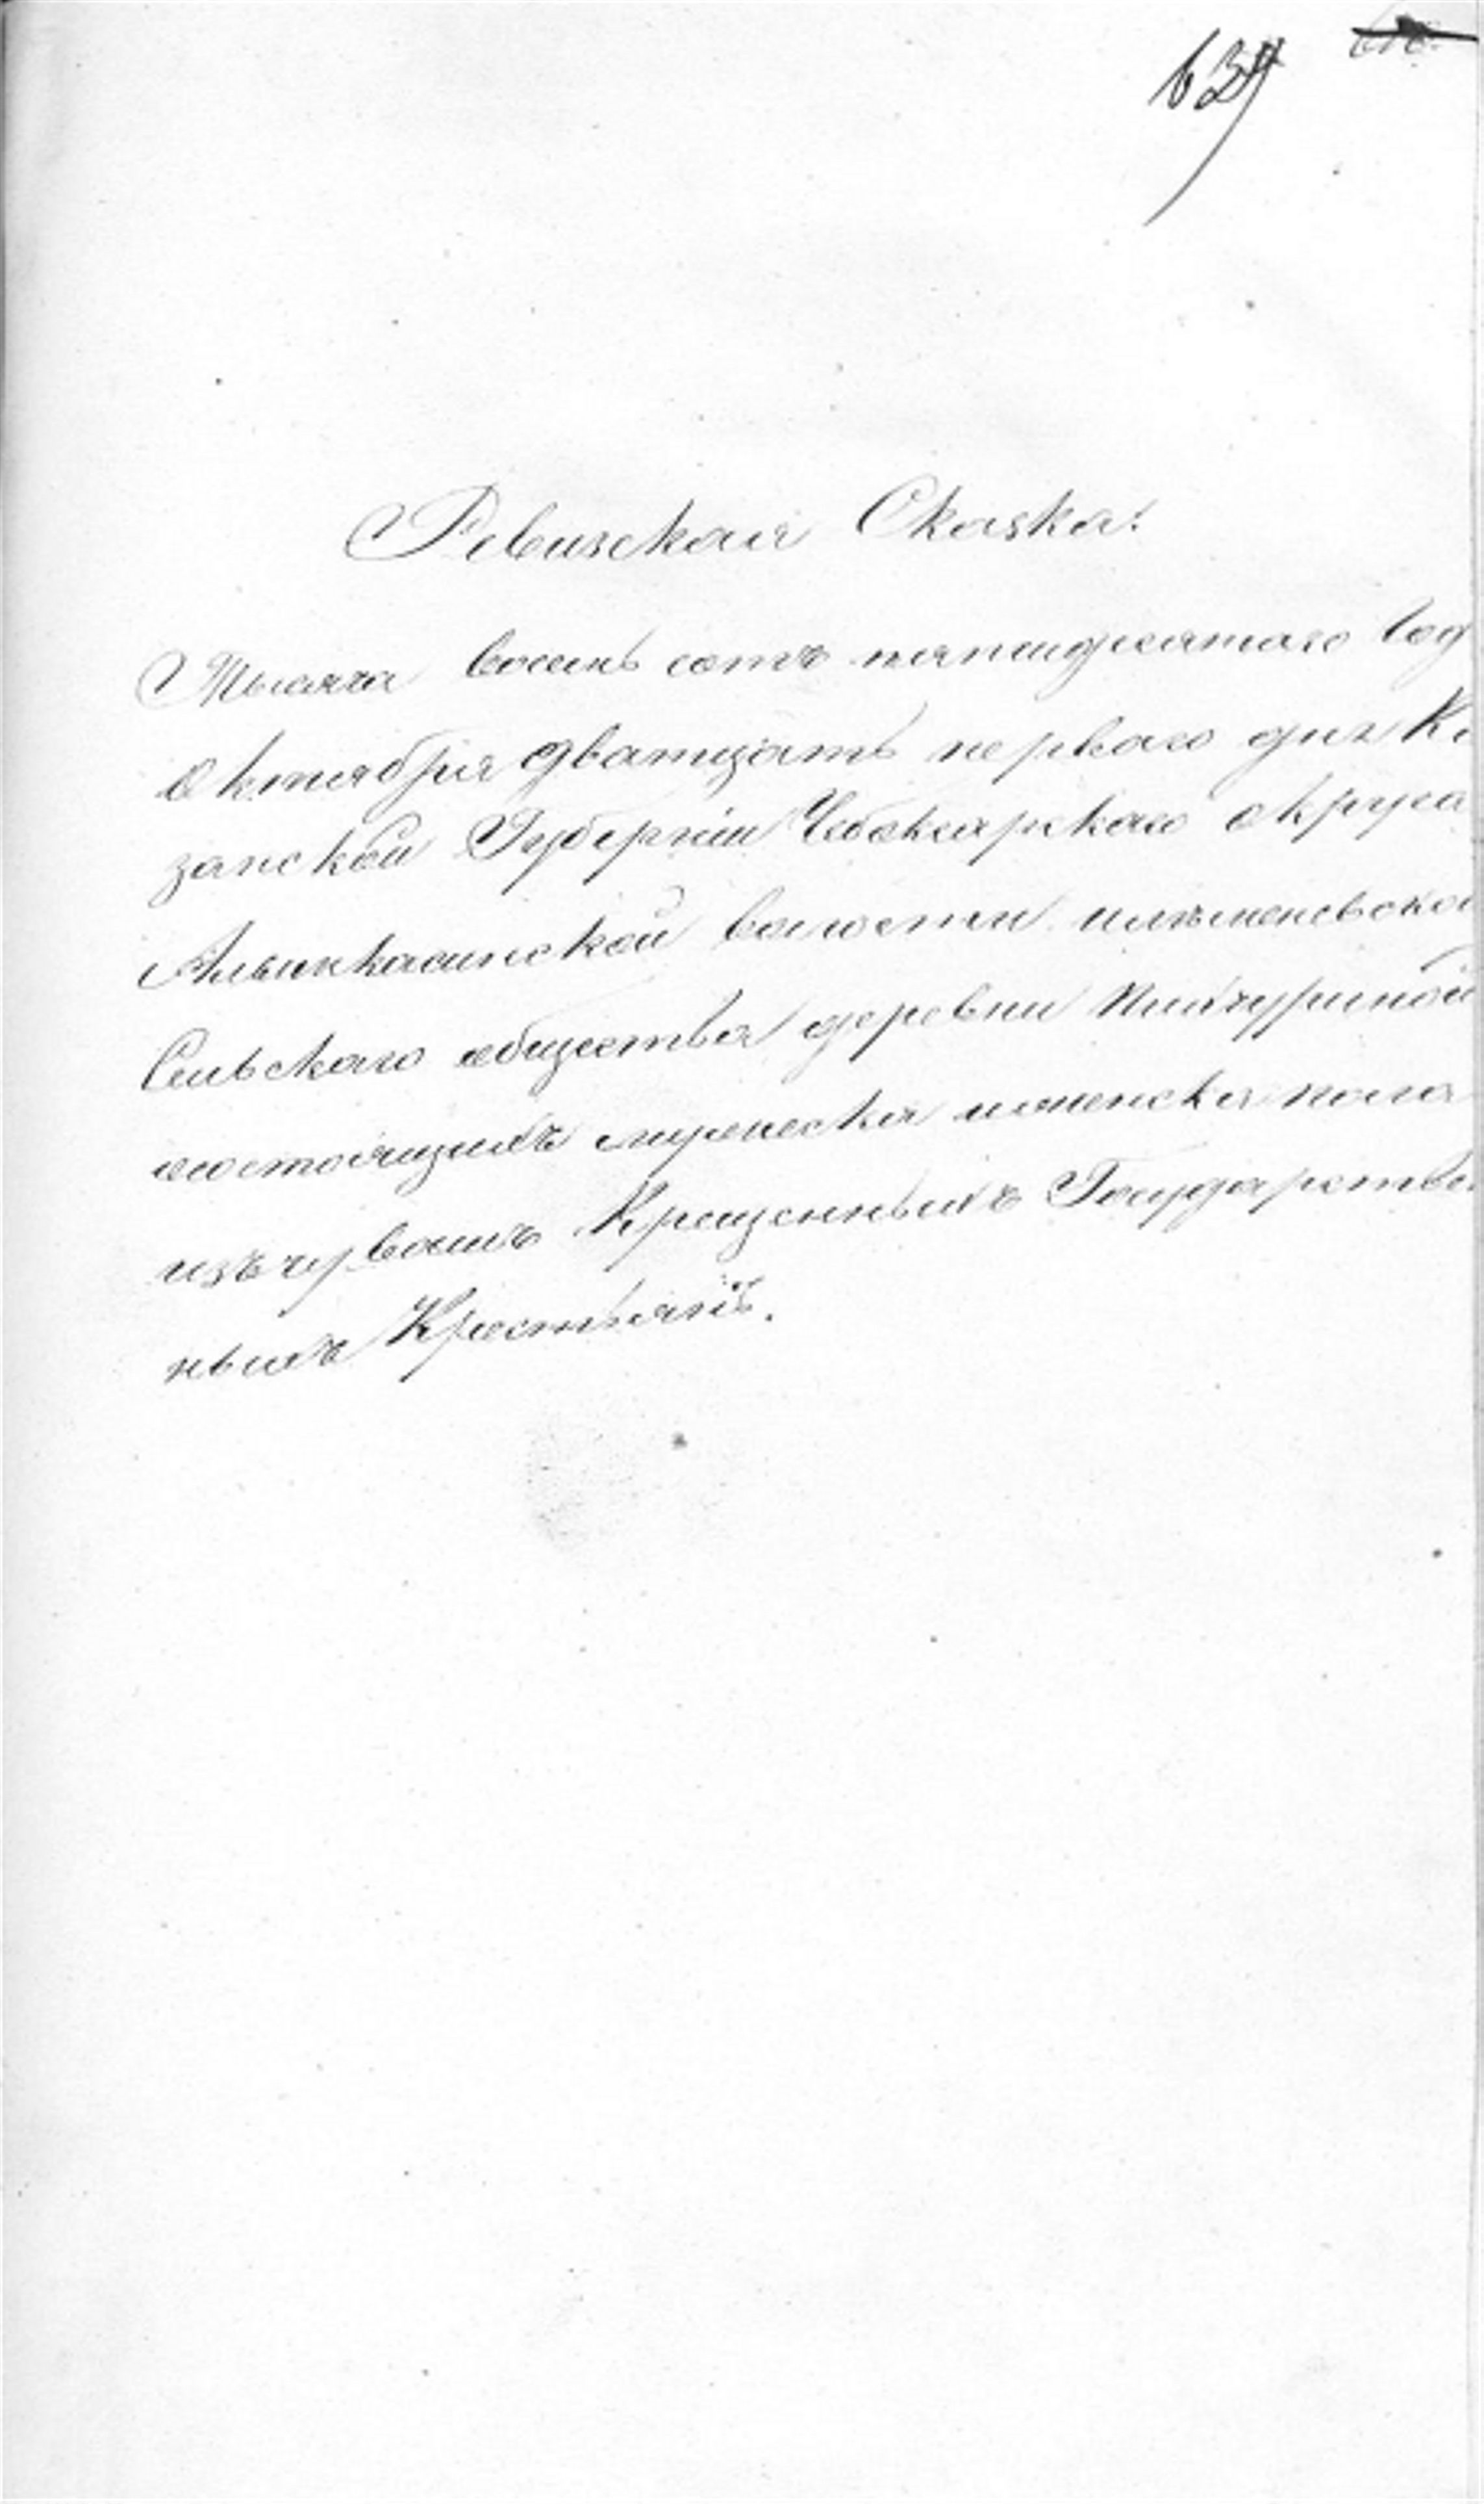 639
Ревизская Сказка.
Тысяча восемь сотъ пятидесятаго Год
Октября дватцать перваго дня Ка
занской Губерніи Чебоксарскаго округа
Алымкасинской волости
Сельскаго общества деревни Пихтулиной
состоящихъ мужеска иженска пола
изъ чувашъ Крещенныхъ Государствен
ныхъ Крестьянъ.